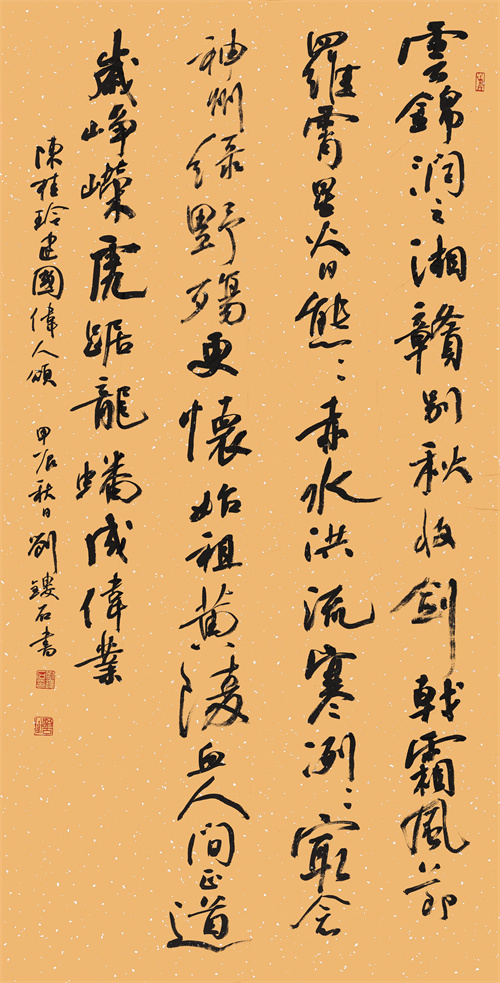 雲錦潤之湘贛別秋收劍戟霜風節
羅霄星火日熊〻赤水洪流寒冽〻最念
神州緑野殤更懷始祖黄陵血人間正道
歲崢嶸虎踞龍蟠成偉業
陳桂玲建國偉人頌 甲辰秋日劉鏤石書